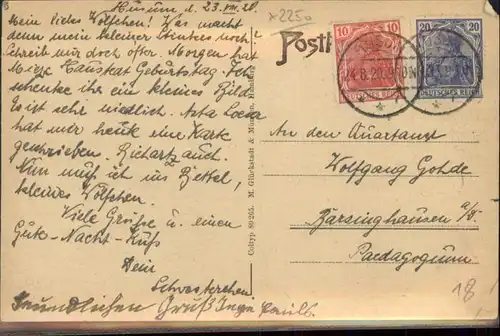 Husum d. 23. VIII. 20.
Mein liebes Wölfchen! Was macht
denn mein kleiner Stinktier noch?
Schreib mir doch öfter. Morgen hat
Mieze Geburtstag. Ich
schenke ihr ein kleines Bild.
Es ist sehr niedlich. Anta
hat mir heute eine Karte
geschrieben. Richartz auch.
Nun muß ich ins Bettel,
kleines Wölfchen.
Viele Grüße u. einen
Gute-Nacht-Kuß
Dein
Schwesterchen
freundlichen Gruß Inge
x2250
Postk
10 10
20 20
DEUTSCHES REICH
DEUTSCHES REICH
HUSUM
24.8.20. 9-10 N
Coltyp 89/265. M. Glückstadt & Münden, Hamburg
An den Quartaner
Wolfgang Gohde
Barsinghausen a/D
Paedagogium
18